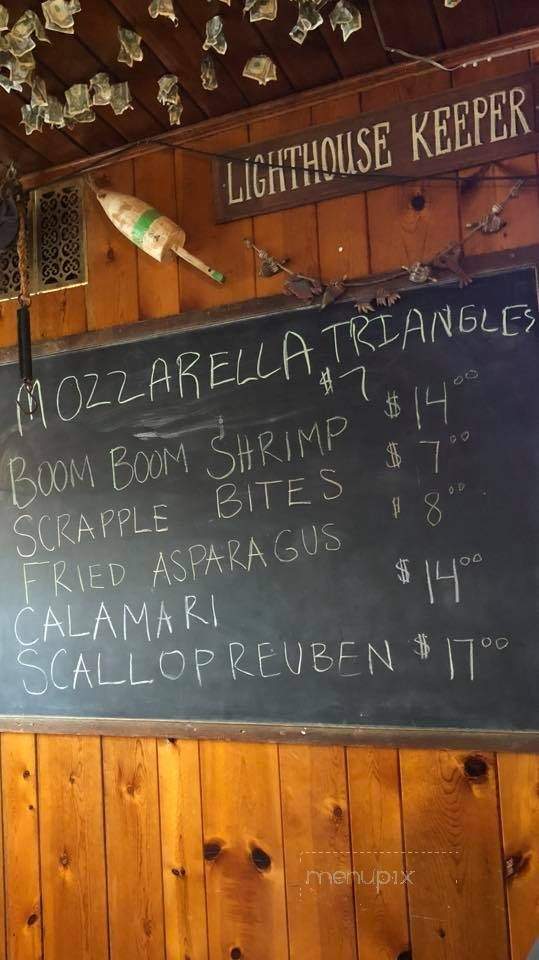 LIGHTHOUSE KEEPER
MOZZARELLA TRIANGLES
$7
BOOM BOOM SHRIMP $14.00
SCRAPPLE BITES $7.00
FRIED ASPARAGUS $8.00
CALAMARI $14.00
SCALLOP REUBEN $17.00
menupix